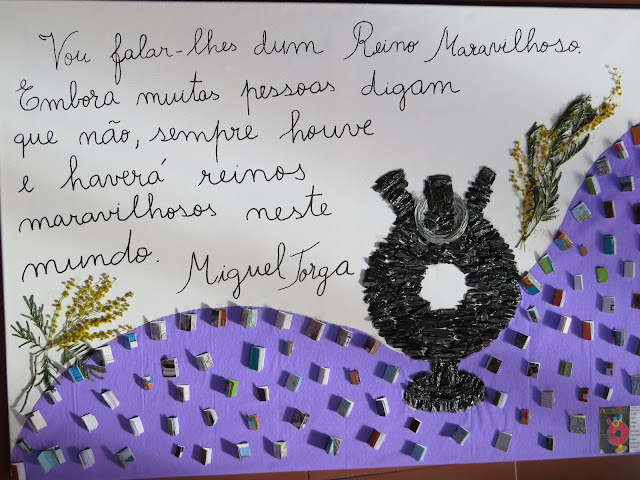 Vou falar-lhes dum Reino Maravilhoso.
Embora muitas pessoas digam
que não, sempre houve
e haverá reinos
maravilhosos neste
mundo.
Miguel Torga